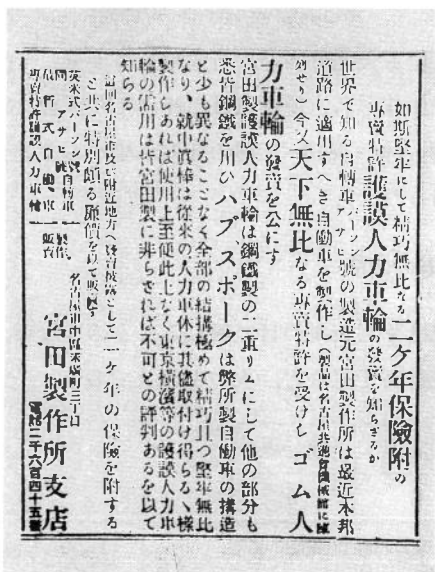 如斯堅牢にして精巧無比なる二ケ年保險附の
專賣特許護謨人力車輪の發賣を知らざるか
世界で知る自轉車パーソン號アサヒ號の製造元宮田製作所は最近本邦
道路に適用すべき自働車を製作し(製品は名古屋共進會機械館に陳
列せり)今又天下無比なる專賣特許を受けしゴム人
力車輪の發賣を公にす
宮田製護謨人力車輪は鋼鐵製の二重リムにして他の部分も
悉皆鋼鐵を用ひハブスポークは弊所製自働車の構造
と少も異なることなく全部の結構極めて精巧且つ堅牢無比
なり、就中眞棒は從來の人力車体に其儘取付け得らるヽ樣
製作しあれば使用上至便此上なく東京橫濱等の護謨人力車
輪の需用は皆宮田製に非らざれば不可との評判あるを以て
知らる
今回名古屋市及び附近地方へ發賣披露として二ケ年の保險を附する
と共に特別頗る廉價を以て販賣す
英米式パーソン號自轉車
同アサヒ號自轉車
最新式自働車
專賣特許護謨人力車輪
製作
販賣
名古屋市中區末廣町三丁目
宮田製作所支店
電話二千六百四十五番